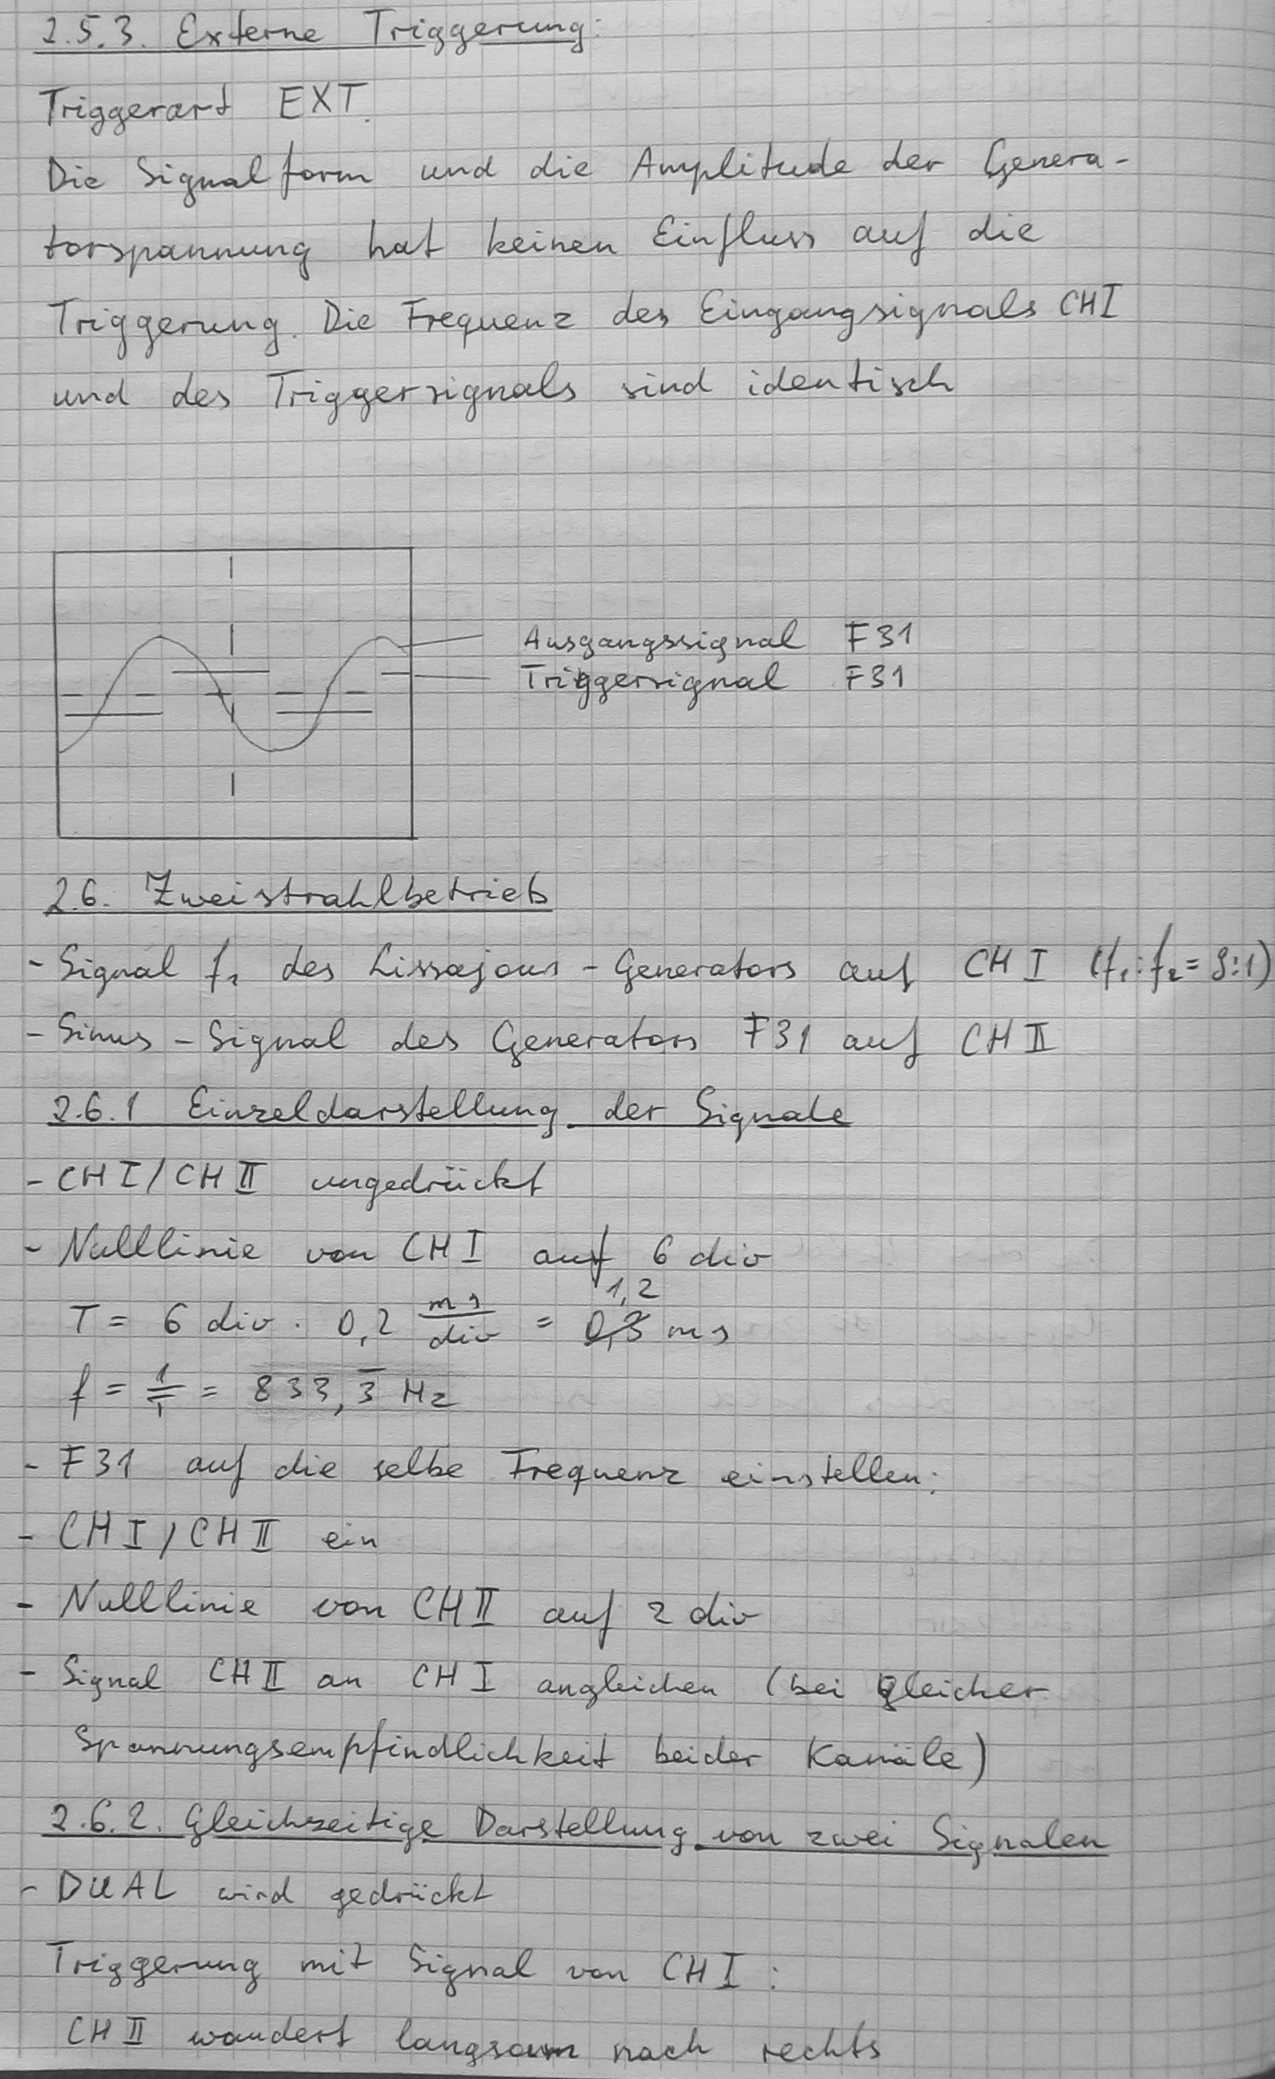 2.5.3. Externe Triggerung:
Triggerart EXT.
Die Signalform und die Amplitude der Genera-
torspannung hat keinen Einfluss auf die
Triggerung. Die Frequenz des Eingangsignals CH I
und des Triggersignals sind identisch
Ausgangssignal F31
Triggersignal F31
2.6. Zweistrahlbetrieb
- Signal f₁ des Lissajous-Generators auf CH I (f₁:f₂ = 9:1)
- Sinus-Signal des Generators F31 auf CH II
2.6.1 Einzeldarstellung der Signale
- CH I / CH II ungedrückt
- Nulllinie von CH I auf 6 div
T = 6 div · 0,2 ms/div = 1,2 ms
f = 1/T = 833,3̅ Hz
- F31 auf die selbe Frequenz einstellen:
- CH I / CH II ein
- Nulllinie von CH II auf 2 div
- Signal CH II an CH I angleichen (bei gleicher
Spannungsempfindlichkeit beider Kanäle)
2.6.2. Gleichzeitige Darstellung von zwei Signalen
- DUAL wird gedrückt
Triggerung mit Signal von CH I :
CH II wandert langsam nach rechts